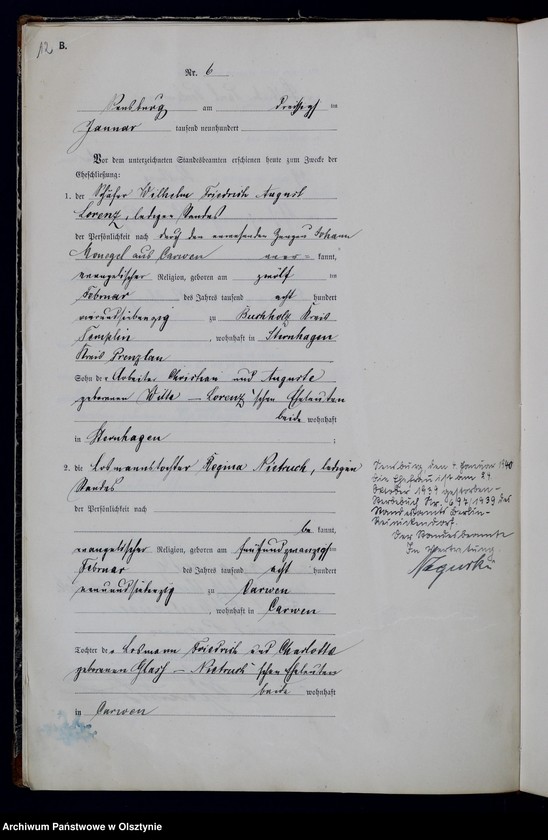 12 B.
Nr. 6
Sensburg am dreißigsten
Januar tausend neunhundert
Vor dem unterzeichneten Standesbeamten erschienen heute zum Zwecke der
Eheschließung:
1. der Schäfer Wilhelm Friedrich August
Lorenz, ledigen Standes
der Persönlichkeit nach durch den anwesenden Zeugen Johann
aus Carwen aner= kannt,
evangelischer Religion, geboren am zwölf ten
Februar des Jahres tausend acht hundert
vierundsiebenzig zu Buchholz Kreis
Templin, wohnhaft in Sternhagen
Kreis Prenzlau
Sohn der Arbeiter Christian und Auguste
geborenen Witte – Lorenz'schen Eheleuten
beide wohnhaft
in Sternhagen ;
2. die Losmannstochter Regina Nietruch, ledigen
Standes
der Persönlichkeit nach
be kannt,
evangelischer Religion, geboren am fünfundzwanzigsten
Februar des Jahres tausend acht hundert
neunundsiebenzig zu Carwen
, wohnhaft in Carwen
Tochter der Losmann Friedrich und Charlotte
geborenen – Nietruch'schen Eheleuten
beide wohnhaft
in Carwen
Sensburg, den 4. Januar 1940
Die Ehefrau ist am 24.
Oktober 1939 gestorben –
Sterbebuch Nr. 694/1939 des
Standesamts Berlin-
Reinickendorf.
Der Standesbeamte
In Vertretung.
Archiwum Państwowe w Olsztynie